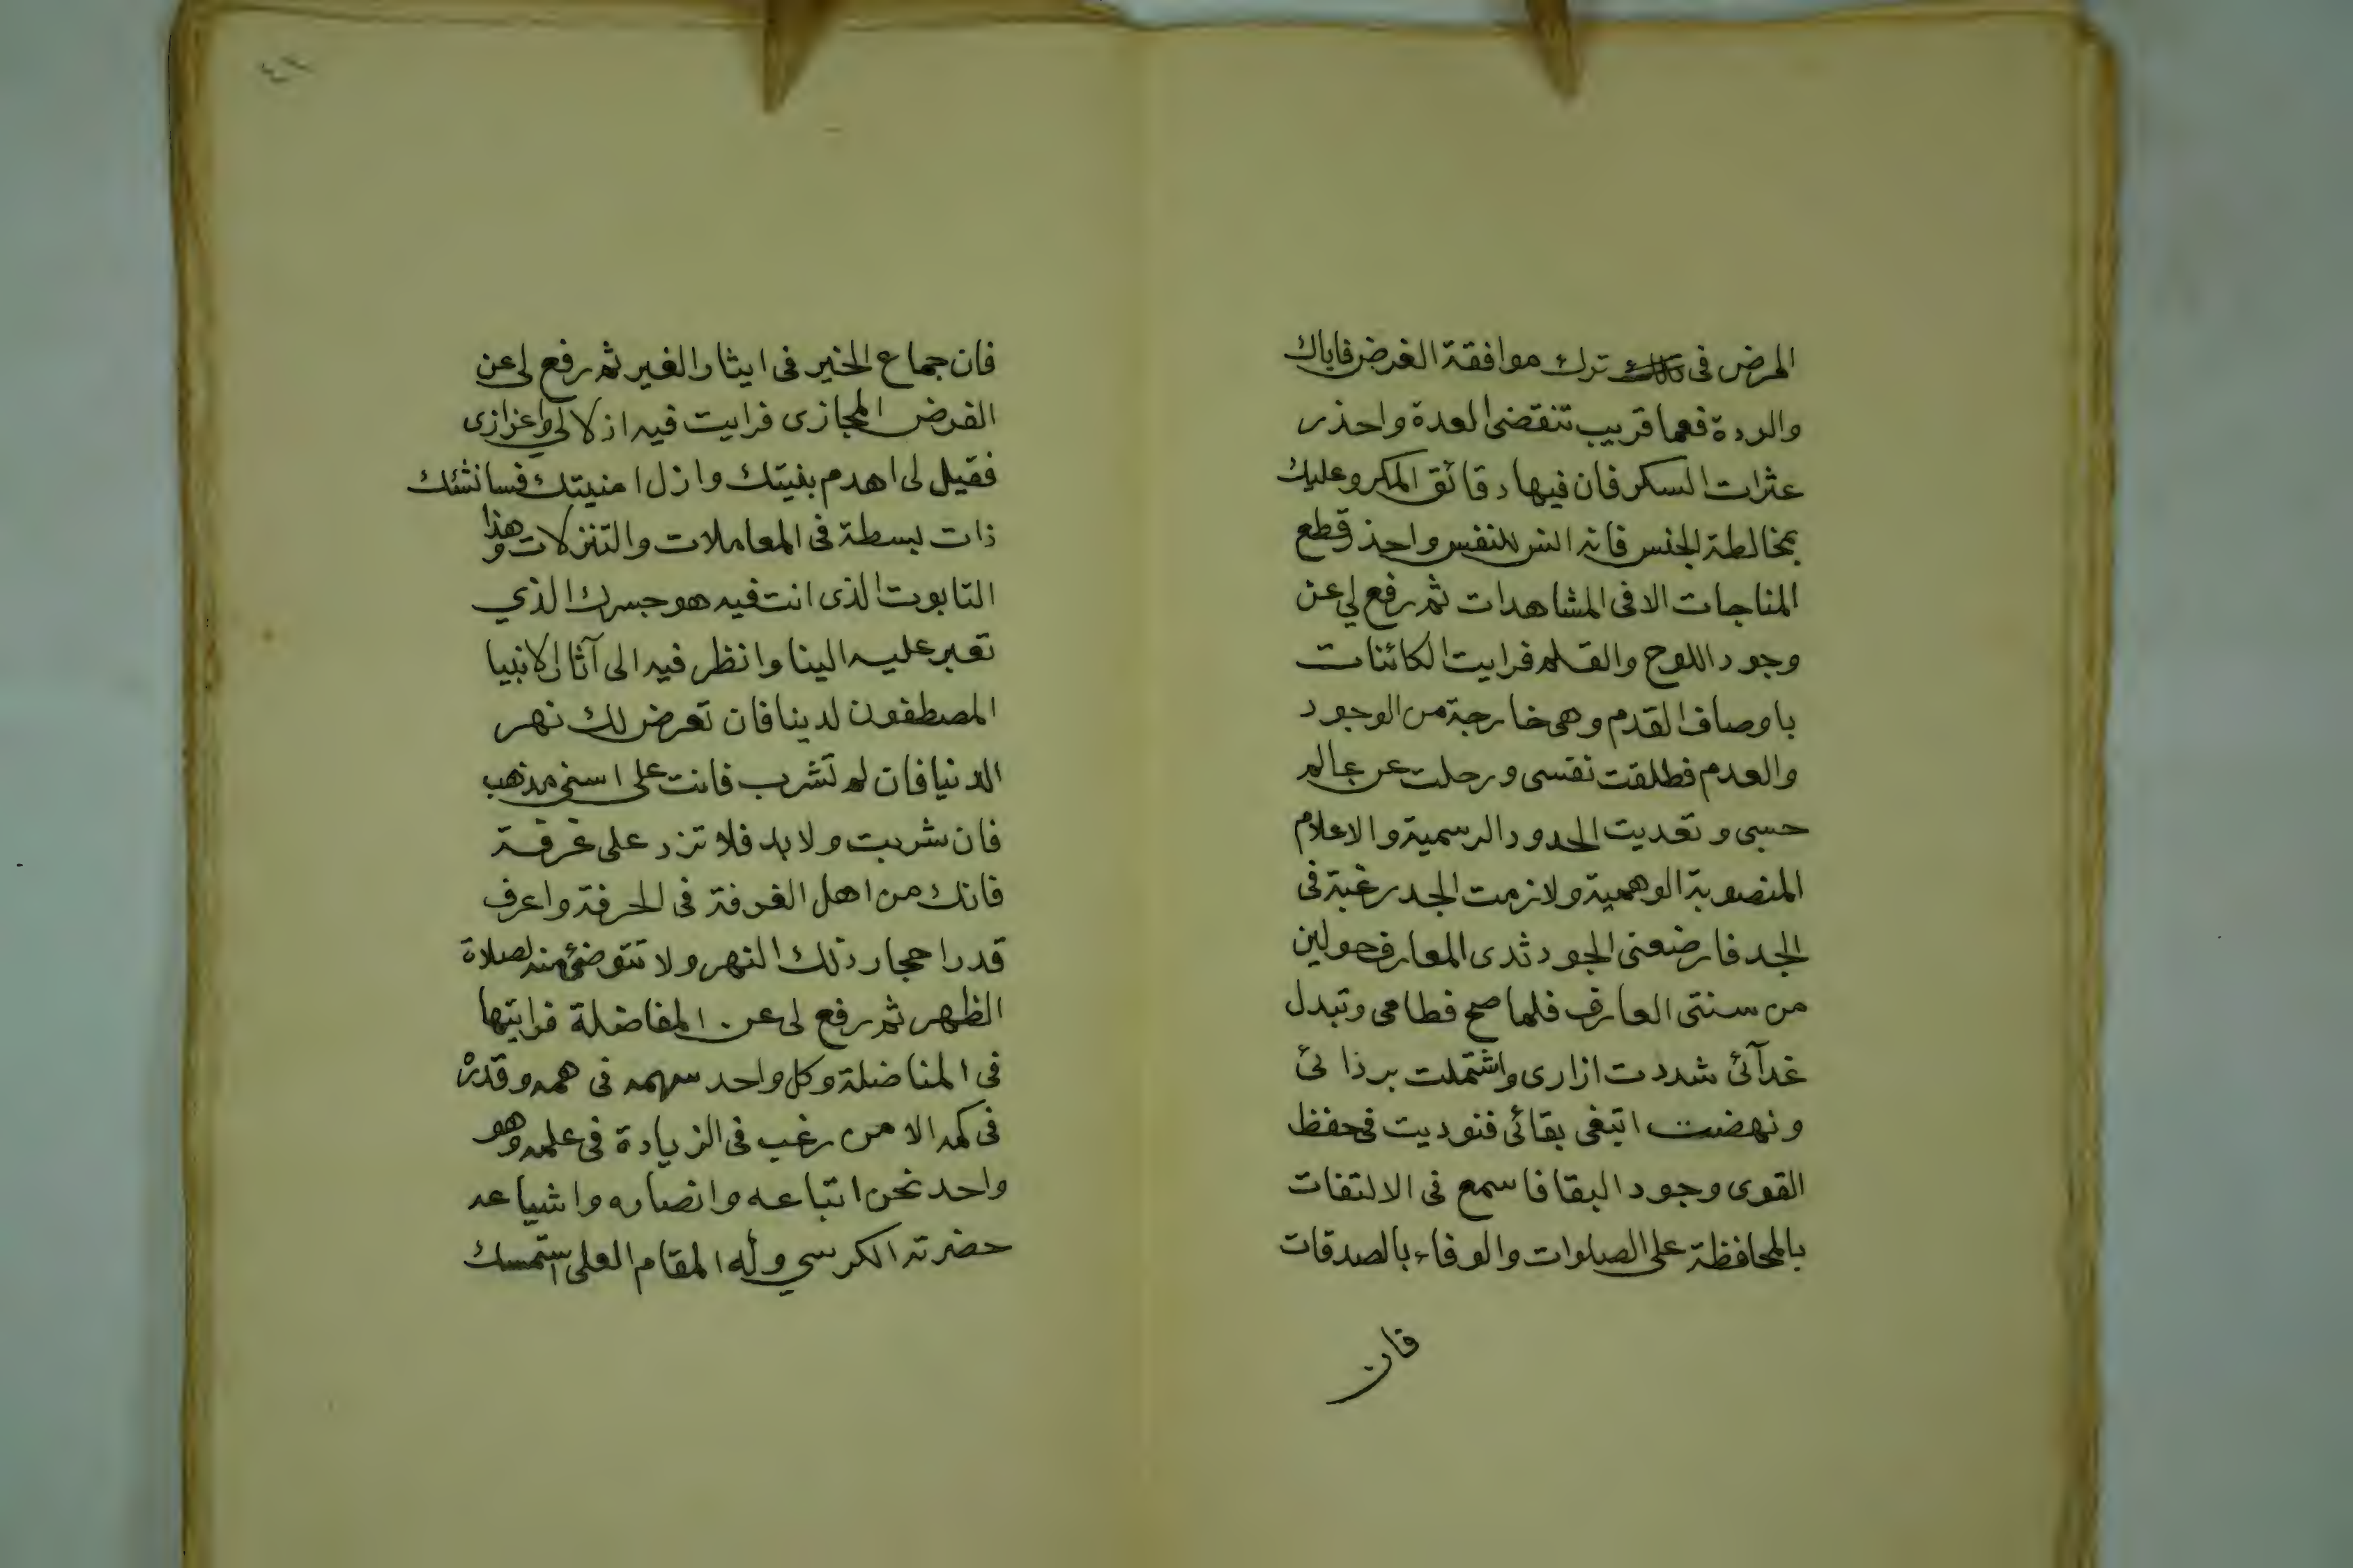 المرض فى ترك موافقة الغرض فاياك
والردة فعما قريب تنقضى العدة واحذر
عثرات السكر فان فيها دقائق المكر وعليك
بمخالطة الجنس فانه انس للنفس واحذ وقطع
المناجات الا فى المشاهدات ثم رفع لي عن
وجود اللوح والقلم فرايت الكائنات
باوصاف القدم وهى خارجة من الوجود
والعدم فطلقت نفسى ورحلت عن عالم
حسى وتعديت الحدود الرسمية والاعلام
المنصوبة الوهمية ولازمت الجد رغبة فى
الجد فارضعنى الجود ثدى المعارف حولين
من سنتى العارف فلما صح فطامى وتبدل
غدآئى شددت ازارى واشتملت برذائى
ونهضت اتبغى بقائى فنوديت فى حفظ
القوى وجود البقا فاسمع فى الالتفات
بالمحافظة على الصلوات والوفاء بالصدقات
فان
فان جماع الخير فى ايثار الغير ثم رفع لى عن
القرض المجازى فرايت فيه اذلالي واعزازى
فقيل لى اهدم بنيتك وازل امنيتك فسانشئك
ذات بسطة فى المعاملات والتنزلات وهذا
التابوت الذى انت فيه هو جسرك الذي
تعبر عليه الينا وانظر فيه الى آثار الانبيا
المصطفون لدينا فان تعرض لك نهر
الدنيا فان لم تشرب فانت على اسنى مذهب
فان شربت ولا بد فلا تزد على غرفة
فانك من اهل الغرفة فى الحرفة واعرف
قدر احجار ذلك النهر ولا تتوضئ منه لصلاة
الظهر ثم رفع لى عن المفاضلة فرايتها
فى المناضلة وكل واحد سهمه فى همه وقدره
فى كمه الا من رغب فى الزيادة فى علمه وهو
واحد نحن اتباعه وانصاره واشياعه
حضرته الكرسي وله المقام العلى استمسك